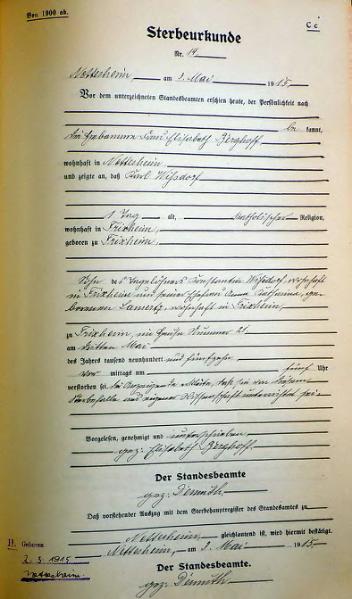 Von 1900 ab.
C c
Sterbeurkunde
Nr. 14.
Nettersheim, am 3. Mai 1915.
Vor dem unterzeichneten Standesbeamten erschien heute, der Persönlichkeit nach
be kannt,
die Hebamme Frau Elisabeth Berghoff
wohnhaft in Nettersheim,
und zeigte an, daß Karl
1 Tag alt, katholischer Religion,
wohnhaft in Frixheim,
geboren zu Frixheim,
Sohn des Tagelöhners Konstantin wohnhaft
in Frixheim und seiner Ehefrau Anna Katharina, ge-
borenen Lamertz, wohnhaft in Frixheim,
zu Frixheim, im Hause Nummer 21
am dritten Mai
des Jahres tausend neunhundert und fünfzehn
vor mittags um fünf Uhr
verstorben sei. Die Anzeigende erklärte, daß sie von diesem
Sterbefalle aus eigener Wissenschaft unterrichtet sei.
Vorgelesen, genehmigt und unterschrieben
gez. Elisabeth Berghoff.
Der Standesbeamte
gez.
Daß vorstehender Auszug mit dem Sterbehauptregister des Standesamtes zu
Nettersheim, gleichlautend ist, wird hiermit bestätigt.
Nettersheim, am 3. Mai 1915.
Geboren
2. 5. 1915
Nettersheim
Der Standesbeamte.
gez.